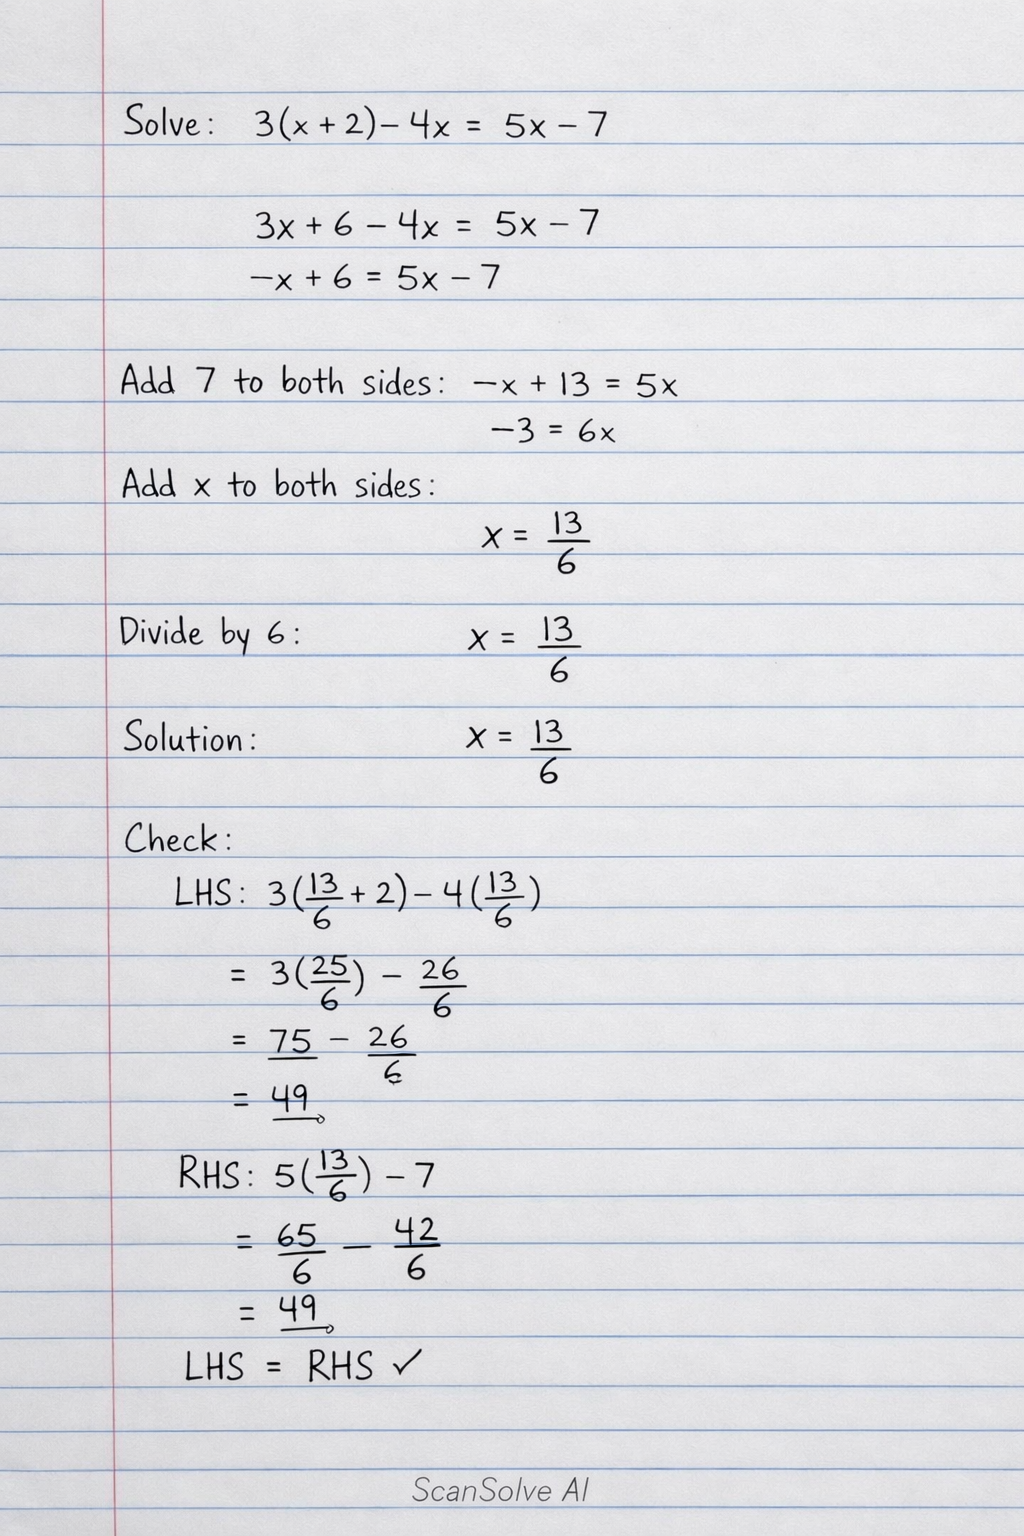 Solve: 3(x + 2) − 4x = 5x − 7
3x + 6 − 4x = 5x − 7
−x + 6 = 5x − 7
Add 7 to both sides: −x + 13 = 5x
−3 = 6x
Add x to both sides:
x = 13/6
Divide by 6: x = 13/6
Solution: x = 13/6
Check:
LHS: 3(13/6 + 2) − 4(13/6)
= 3(25/6) − 26/6
= 75 − 26/6
= 49
RHS: 5(13/6) − 7
= 65/6 − 42/6
= 49
LHS = RHS ✓
ScanSolve AI